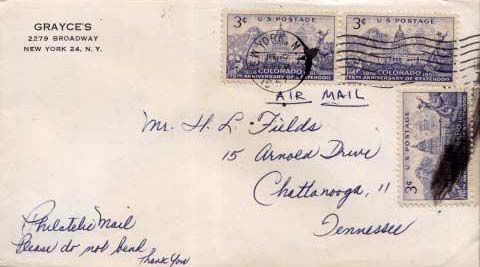 GRAYCE'S
2279 BROADWAY
NEW YORK 24, N. Y.
3¢ U S POSTAGE
COLORADO
75TH ANNIVERSARY OF STATEHOOD
3¢ U S POSTAGE
1876 COLORADO 1951
75TH ANNIVERSARY OF STATEHOOD
NEW YORK, N.
AIR MAIL
3¢ U S POSTAGE
Mr. H. L. Fields
15 Arnold Drive
Chattanooga, 11
Tennessee
Philatelic Mail
Please do not bend
Thank You